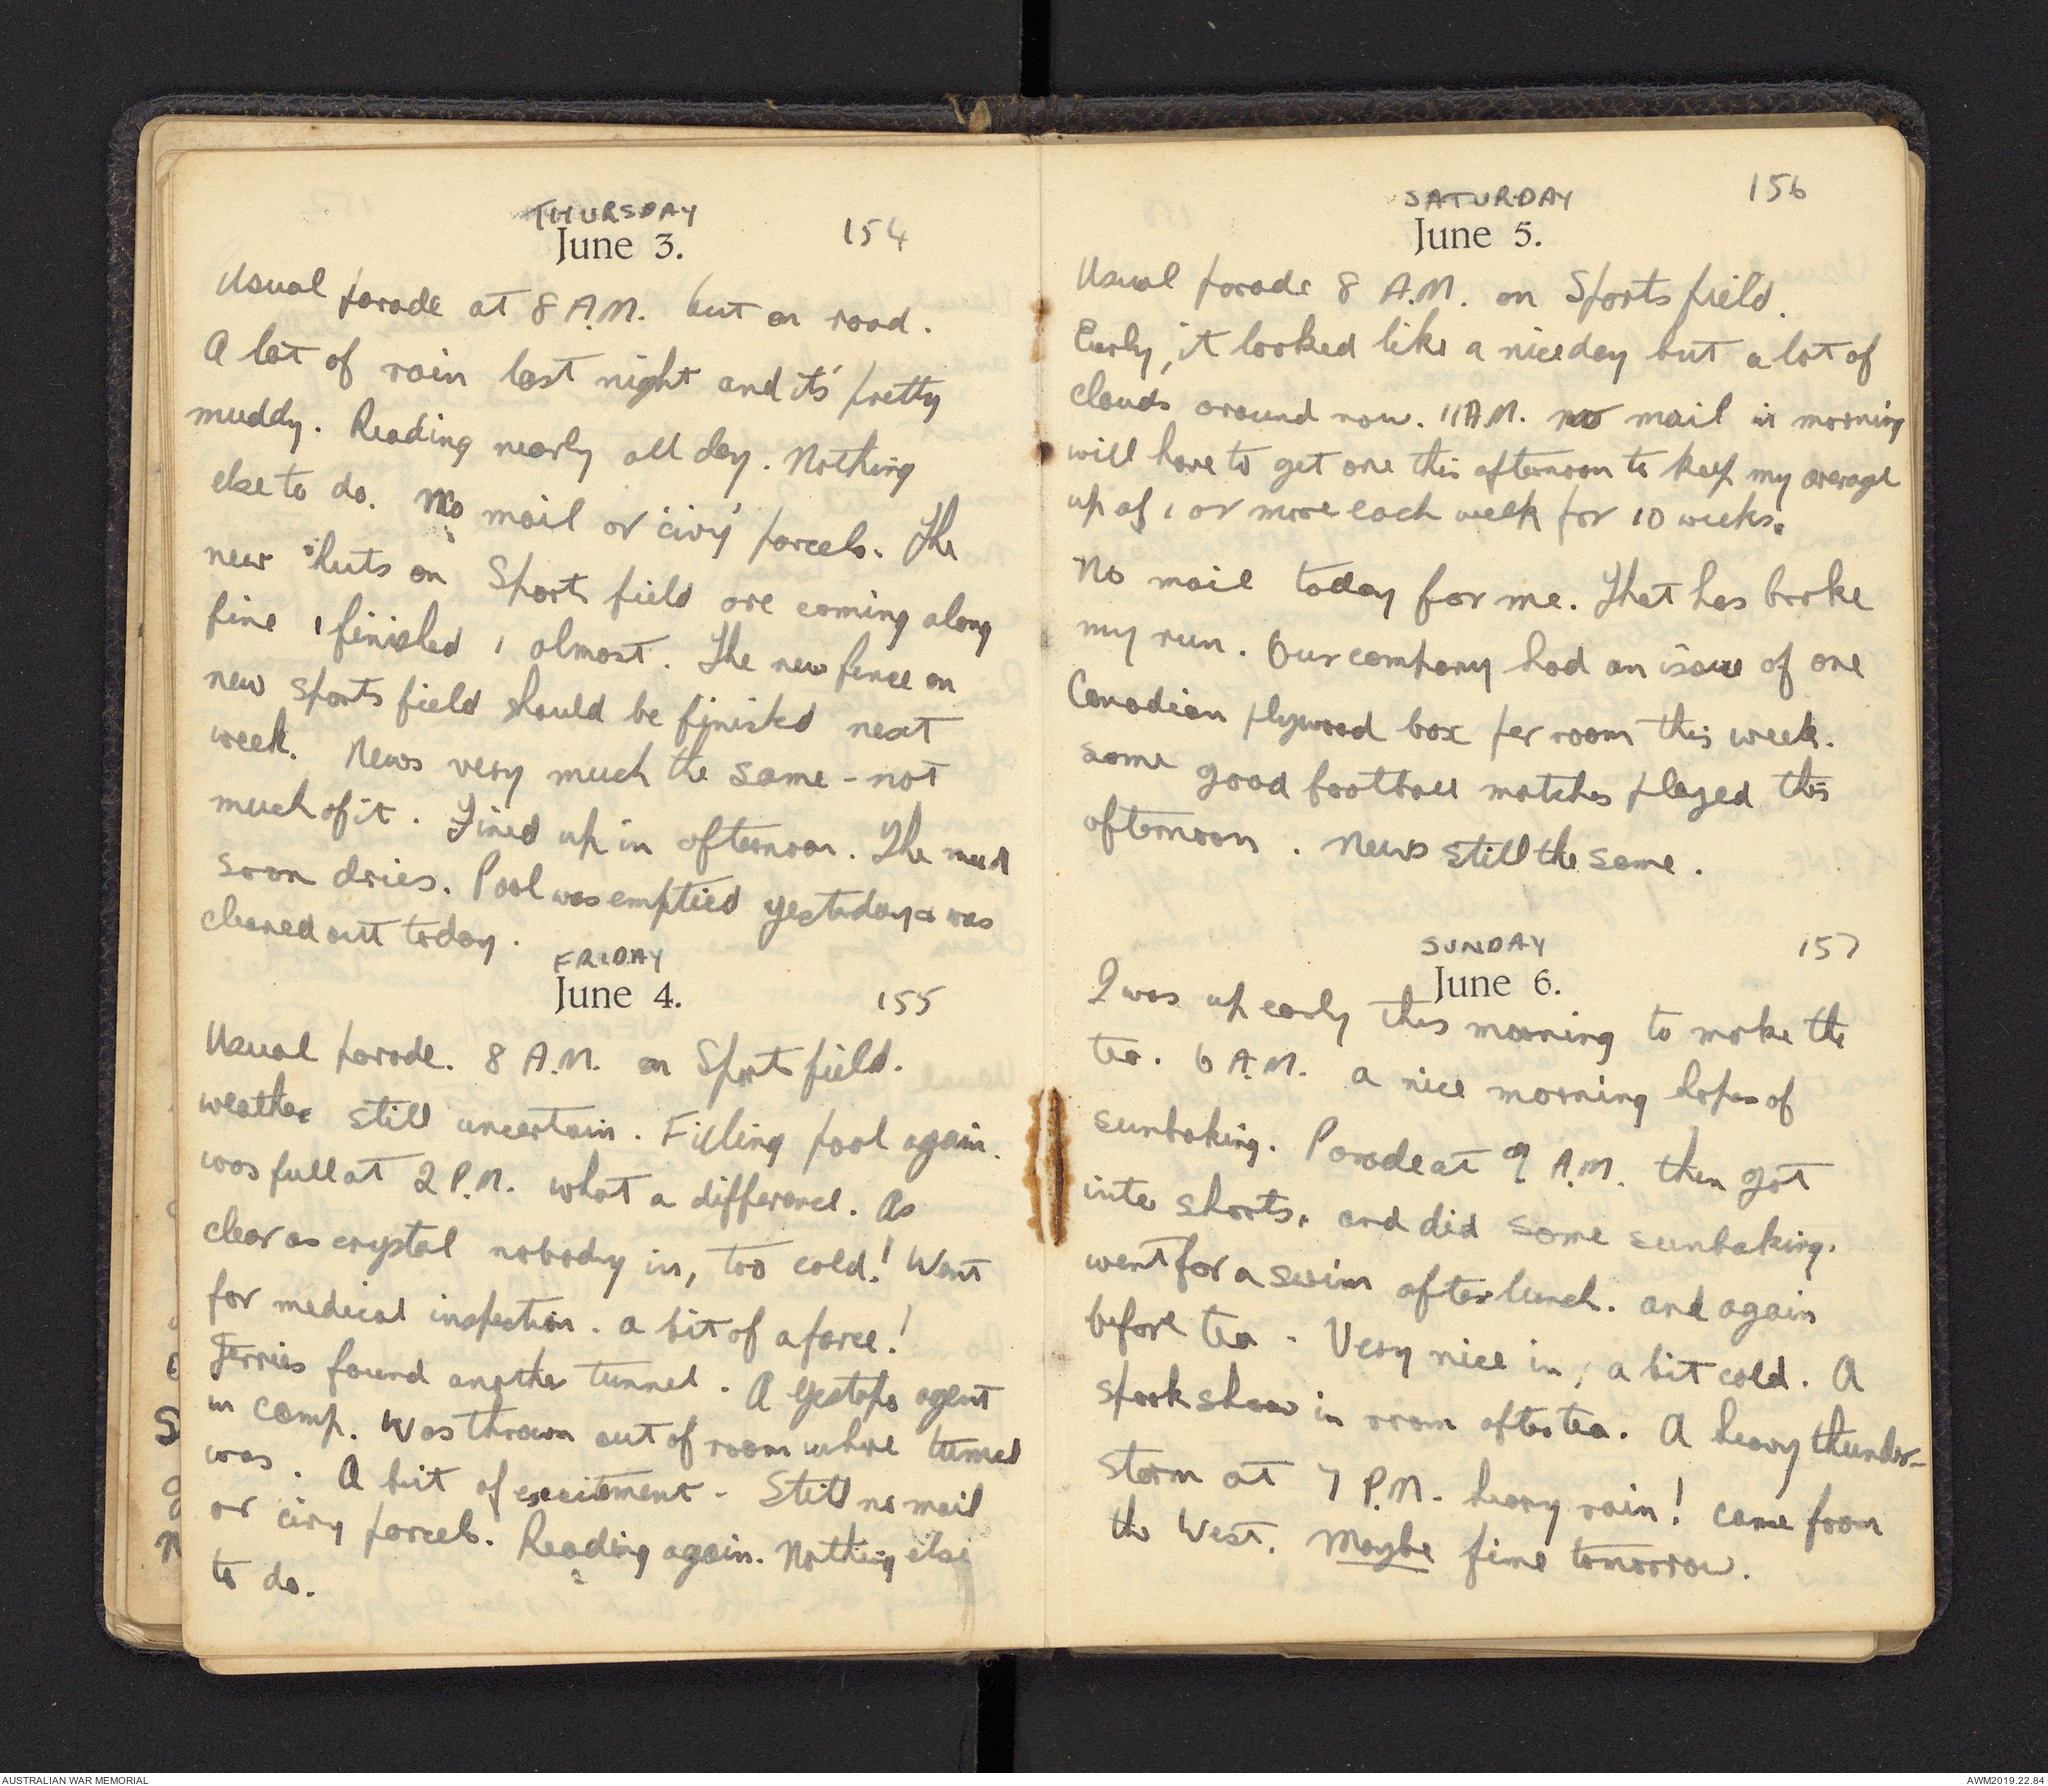 THURSDAY
June 3. 154
Usual parade at 8 A.M. but on road.
A lot of rain last night and its' pretty
muddy. Reading nearly all day. Nothing
else to do. No mail or 'civy' parcels. The
new huts on Sport field are coming along
fine 1 finished 1 almost. The new fence on
new sports field should be finished next
week. News very much the same - not
much of it. Fined up in afternoon. The mud
soon dries. Pool was emptied yesterday & was
cleaned out today.
FRIDAY
June 4. 155
Usual parade. 8 A.M. on Sports field.
weather still uncertain. Filling pool again.
was full at 2 P.M. what a difference. As
clear as crystal nobody in, too cold! Went
for medical inspection. a bit of a farce!
Jerries found another tunnel. A gestapo agent
in camp. Was thrown out of room where tunnel
was. A bit of excitement - Still no mail
or civy parcels. Reading again. Nothing else
to do.
SATURDAY 156
June 5.
Usual parade 8 A.M. on Sports field.
Early, it looked like a nice day but a lot of
clouds around now. 11 A.M. no mail in morning
will have to get one this afternoon to keep my average
up of 1 or more each week for 10 weeks.
No mail today for me. That has broke
my run. Our company had an issue of one
Canadian plywood box per room this week.
some good football matches played this
afternoon. News still the same.
SUNDAY 157
June 6.
I was up early this morning to make the
tea. 6 A.M. a nice morning hopes of
sunbaking. Parade at 9 A.M. then got
into shorts, and did some sunbaking.
went for a swim after lunch. and again
before tea - Very nice in, a bit cold. A
spook show in room after tea. A heavy thunder-
storm at 7 P.M. heavy rain! came from
the West. Maybe fine tomorrow.
AUSTRALIAN WAR MEMORIAL
AWM2019.22.84